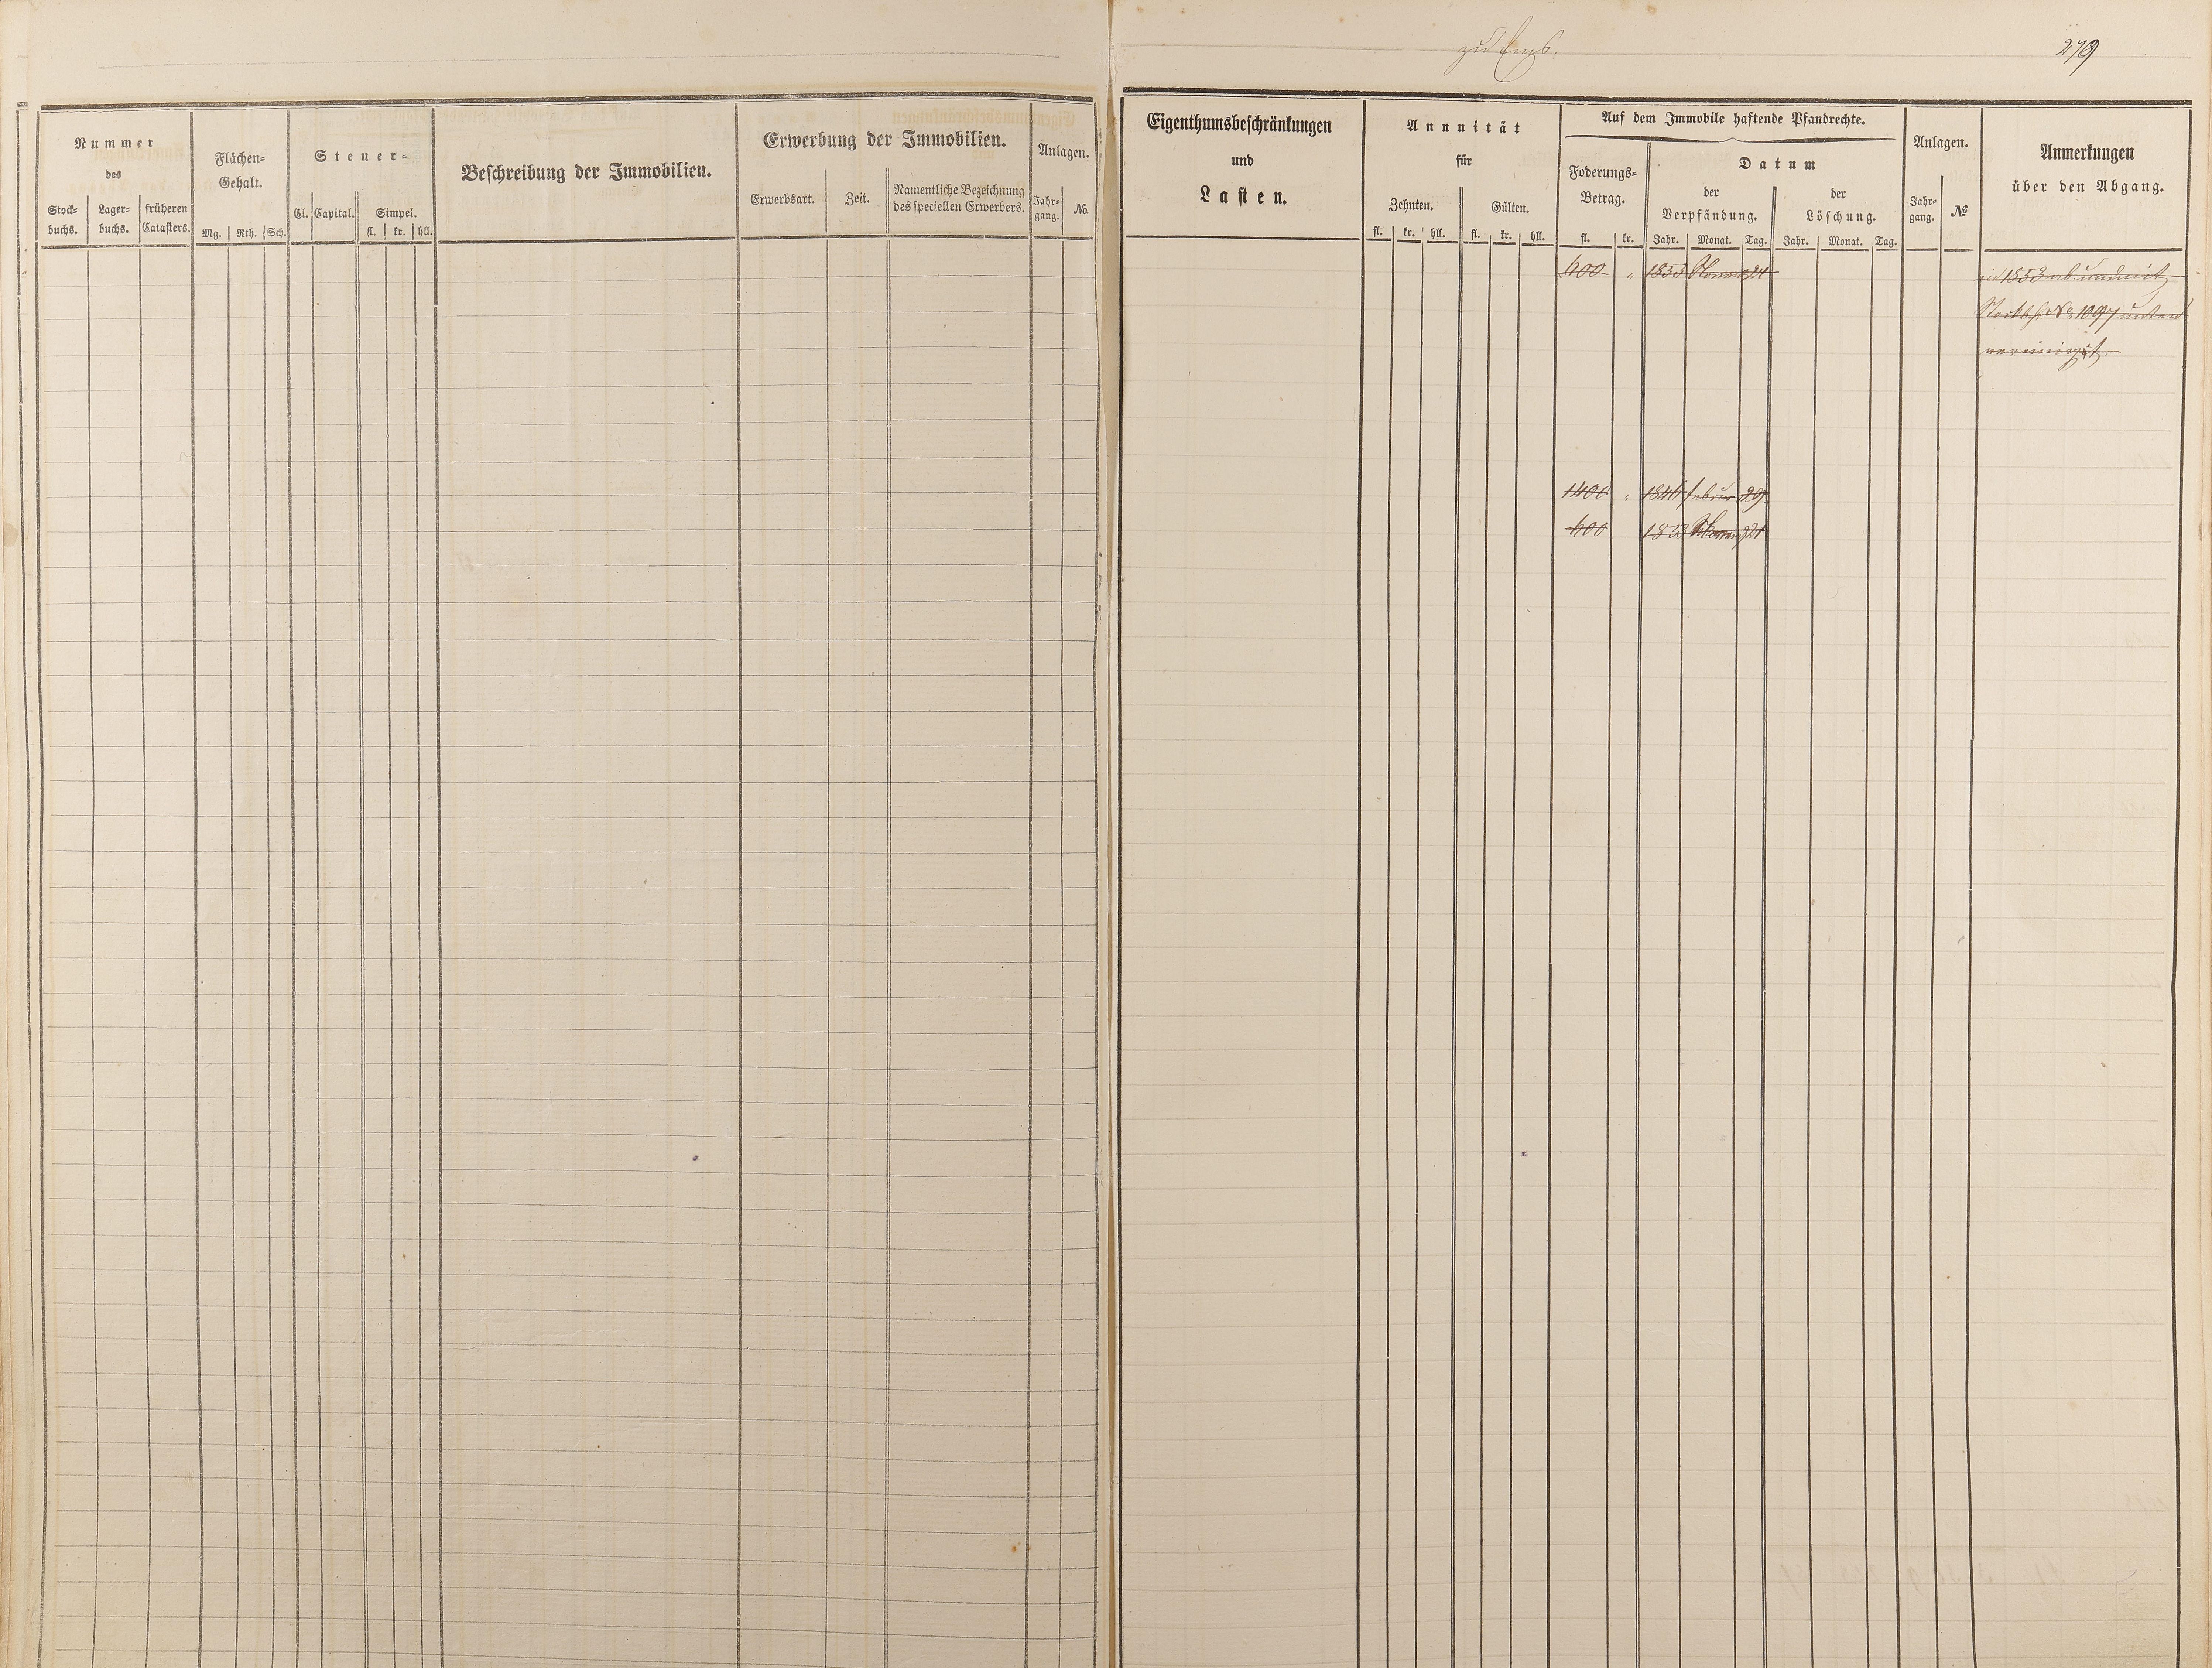 zu Ems.
279
Nummer
des
Stock-
buchs.
Lager-
buchs.
früheren
Catasters.
Flächen-
Gehalt.
Mg. Rth. Sch.
Steuer-
Cl. Capital. Simpel.
fl. kr. hll.
Beschreibung der Immobilien.
Erwerbung der Immobilien.
Erwerbsart. Zeit.
Namentliche Bezeichnung
des speciellen Erwerbers.
Anlagen.
Jahr-
gang.
No.
Eigenthumsbeschränkungen
und
Lasten.
Annuität
für
Zehnten. Gülten.
fl. kr. hll. fl. kr. hll.
Auf dem Immobile haftende Pfandrechte.
Foderungs-
Betrag.
fl. kr.
Datum
der
Verpfändung.
Jahr. Monat. Tag.
der
Löschung.
Jahr. Monat. Tag.
Anlagen.
Jahr-
gang.
№
Anmerkungen
über den Abgang.
600 " 1853 24
1853 ab und mit
Stockb. No. 1097 unten
vereinigt.
1400 " 1846 Februar 29
600 1853 21